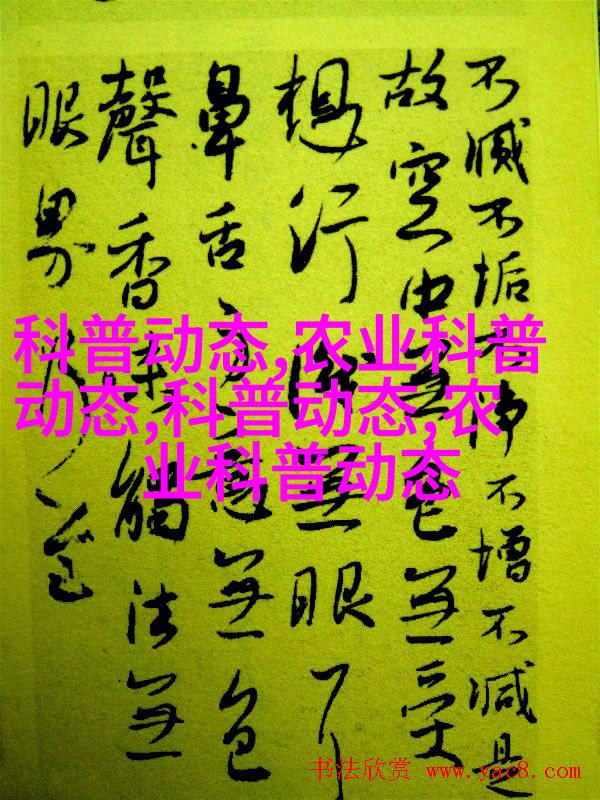 不减不垢不净不增不减是
故空中無色無受
想行識無眼耳
鼻舌身意無色
聲香味觸法無
眼界乃至
科普动态,农业科普
动态,科普动态,农
业科普动态
书法欣赏 www.yac8.com